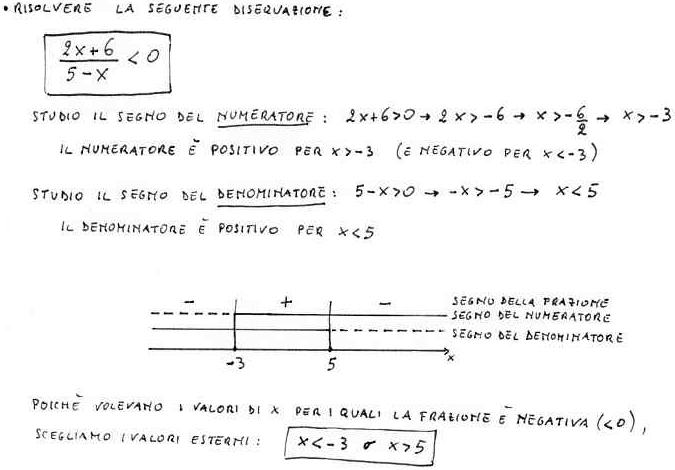 • RISOLVERE LA SEGUENTE DISEQUAZIONE:
2x+6
5-x
< 0
STUDIO IL SEGNO DEL NUMERATORE: 2x+6>0 → 2x>-6 → x>-6/2 → x>-3
IL NUMERATORE È POSITIVO PER x>-3 (E NEGATIVO PER x<-3)
STUDIO IL SEGNO DEL DENOMINATORE: 5-x>0 → -x>-5 → x<5
IL DENOMINATORE È POSITIVO PER x<5
- + - SEGNO DELLA FRAZIONE
SEGNO DEL NUMERATORE
SEGNO DEL DENOMINATORE
-3 5 x
POICHÈ VOLEVAMO I VALORI DI x PER I QUALI LA FRAZIONE È NEGATIVA (<0),
SCEGLIAMO I VALORI ESTERNI: x<-3 o x>5